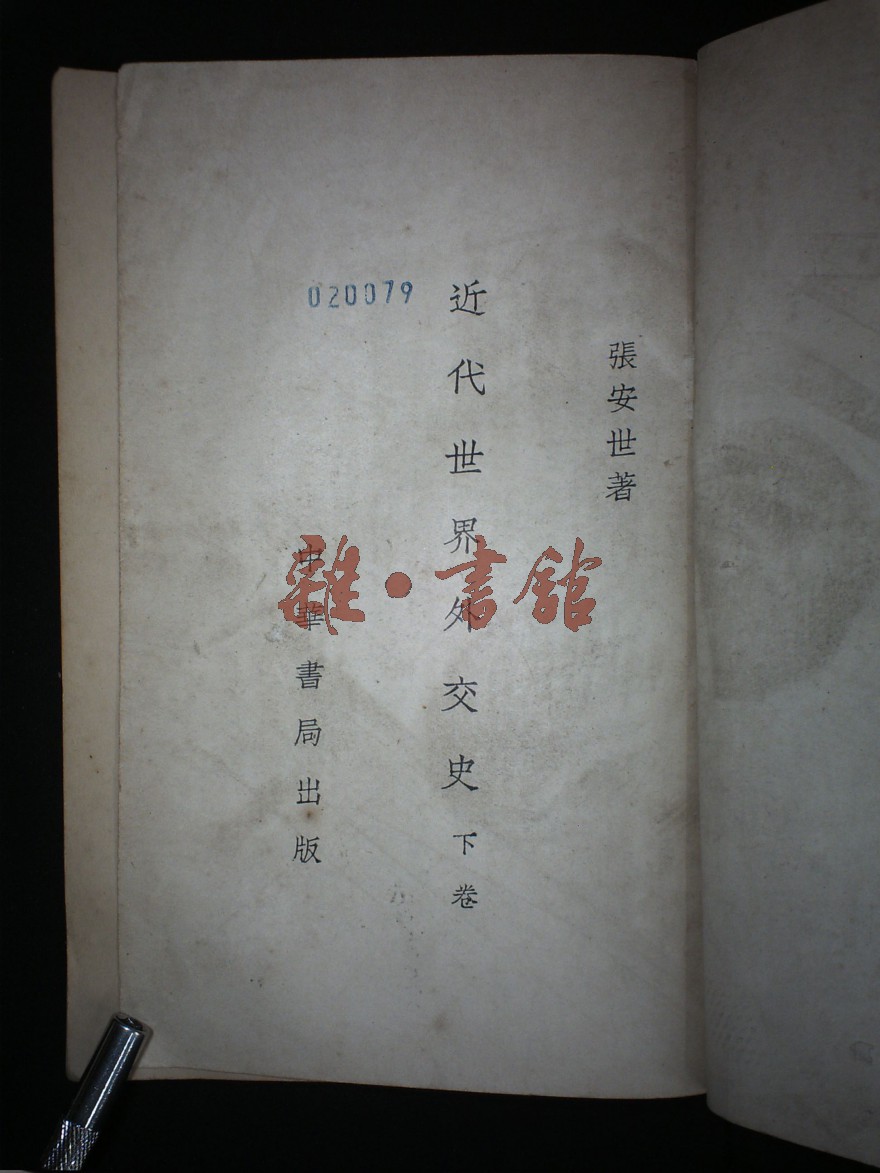 張安世著
近代世界外交史 下卷
020079
中華書局出版
雜·書館